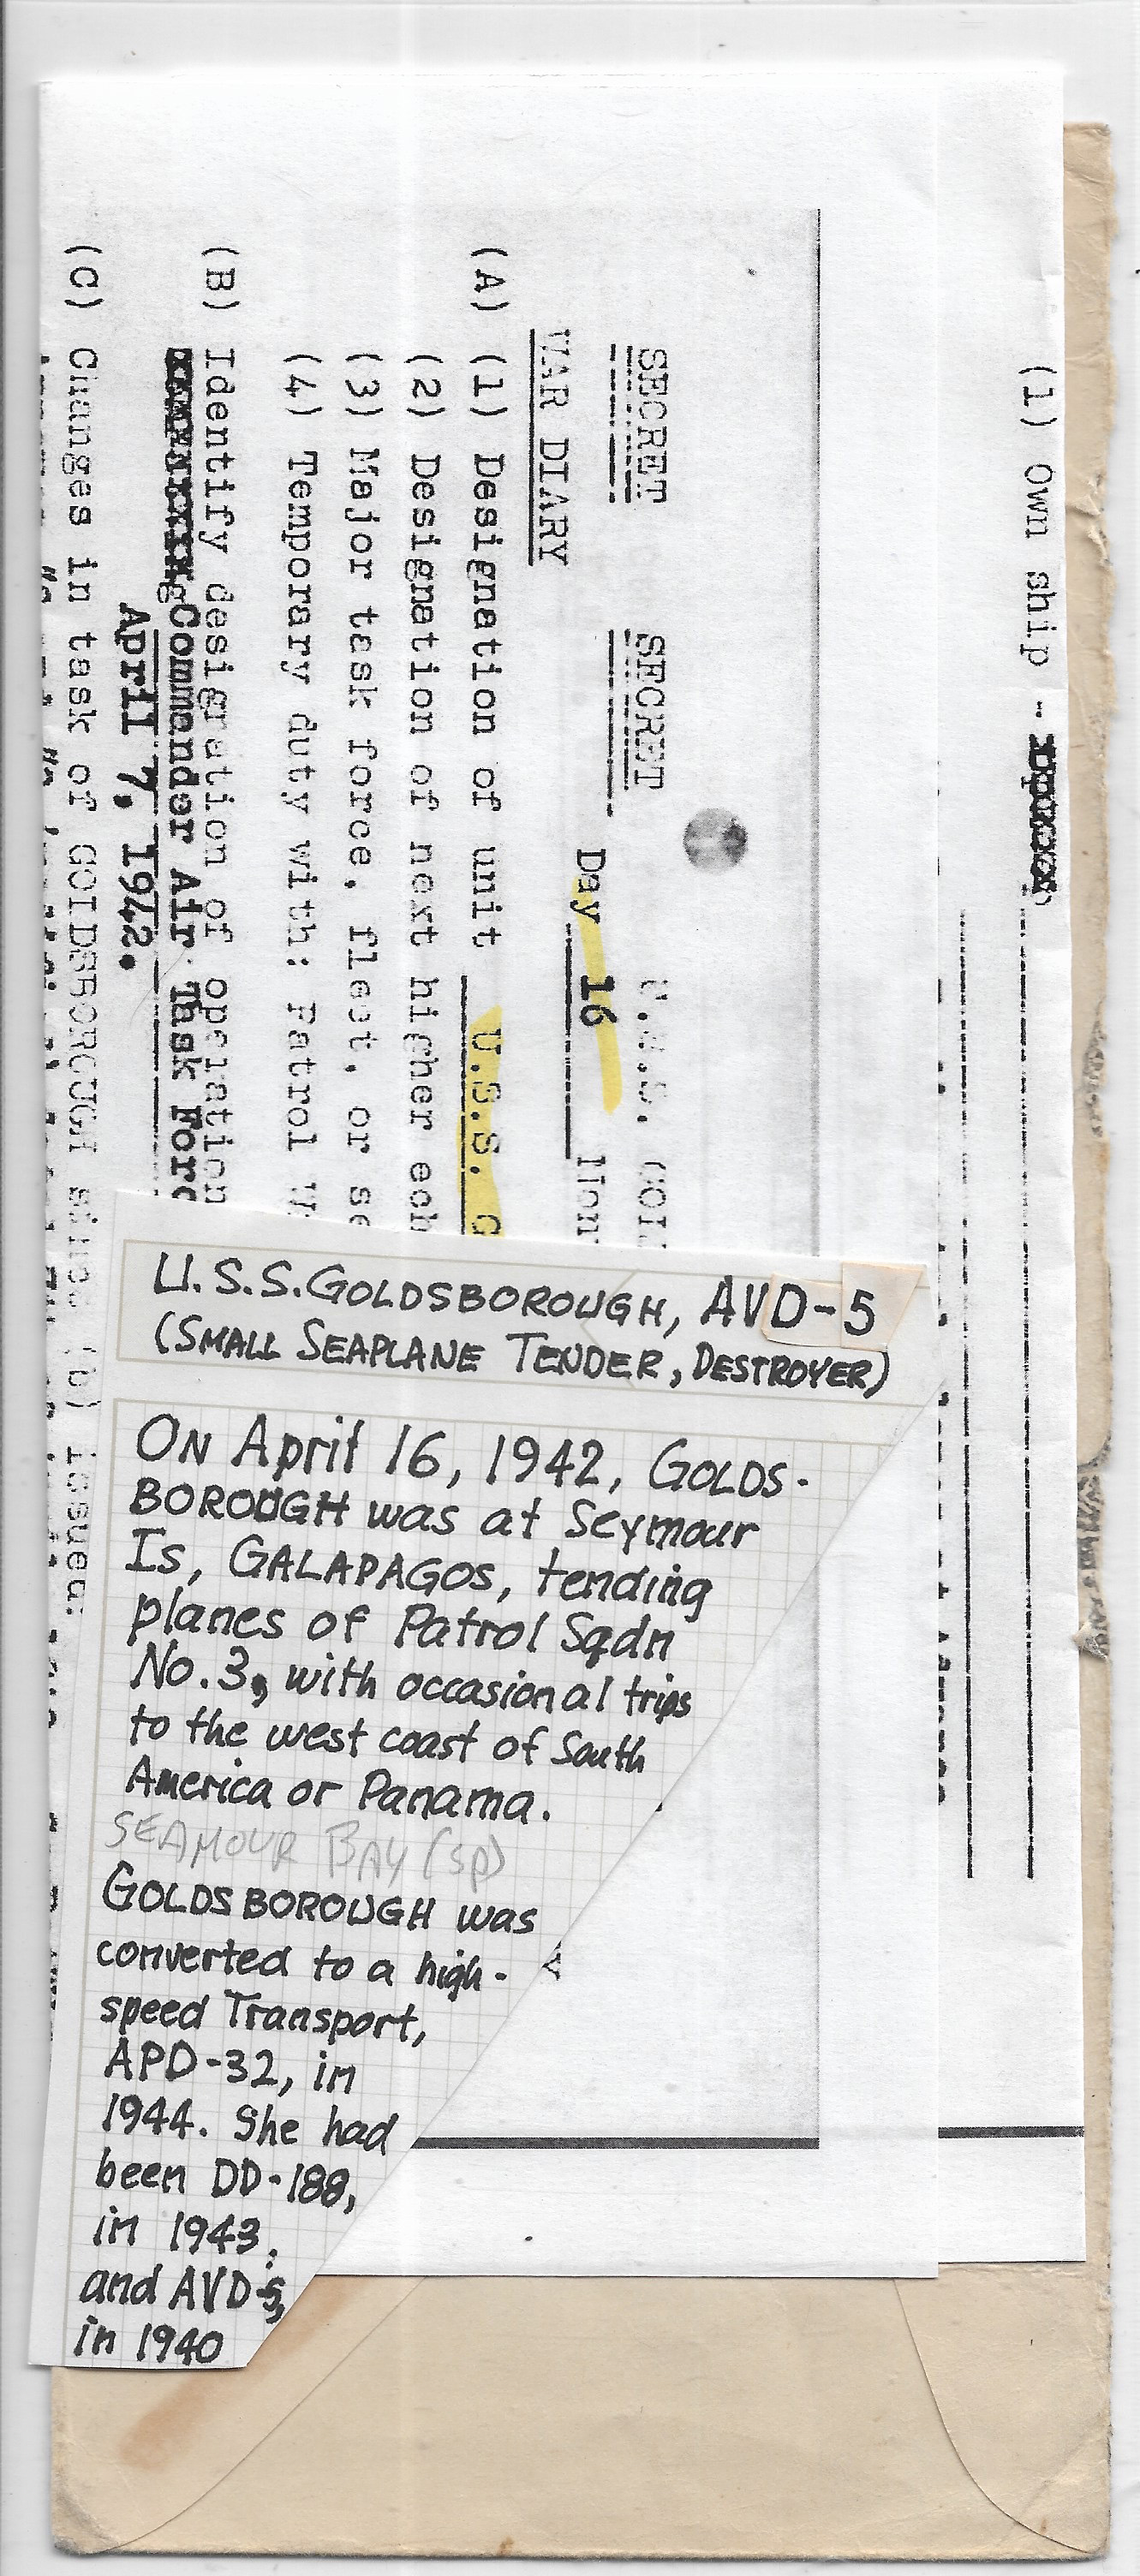 (1) Own ship -
SECRET SECRET
WAR DIARY Day 16
(A) (1) Designation of unit U.S.S. G
(2) Designation of next higher ech
(3) Major task force, fleet, or se
(4) Temporary duty with: Patrol W
(B) Identify designation of operation
Commander Air Task Forc
April 7, 1942.
(C) Changes in task of GOLDSBOROUGH since (b) issued:
U.S.S. GOLDSBOROUGH, AVD-5
(SMALL SEAPLANE TENDER, DESTROYER)
ON April 16, 1942, GOLDS-
BOROUGH was at Seymour
Is, GALAPAGOS, tending
planes of Patrol Sqdn
No. 3, with occasional trips
to the west coast of South
America or Panama.
SEAMOUR BAY (SP)
GOLDSBOROUGH was
converted to a high-
speed Transport,
APD-32, in
1944. She had
been DD-188,
in 1943;
and AVD-5,
in 1940